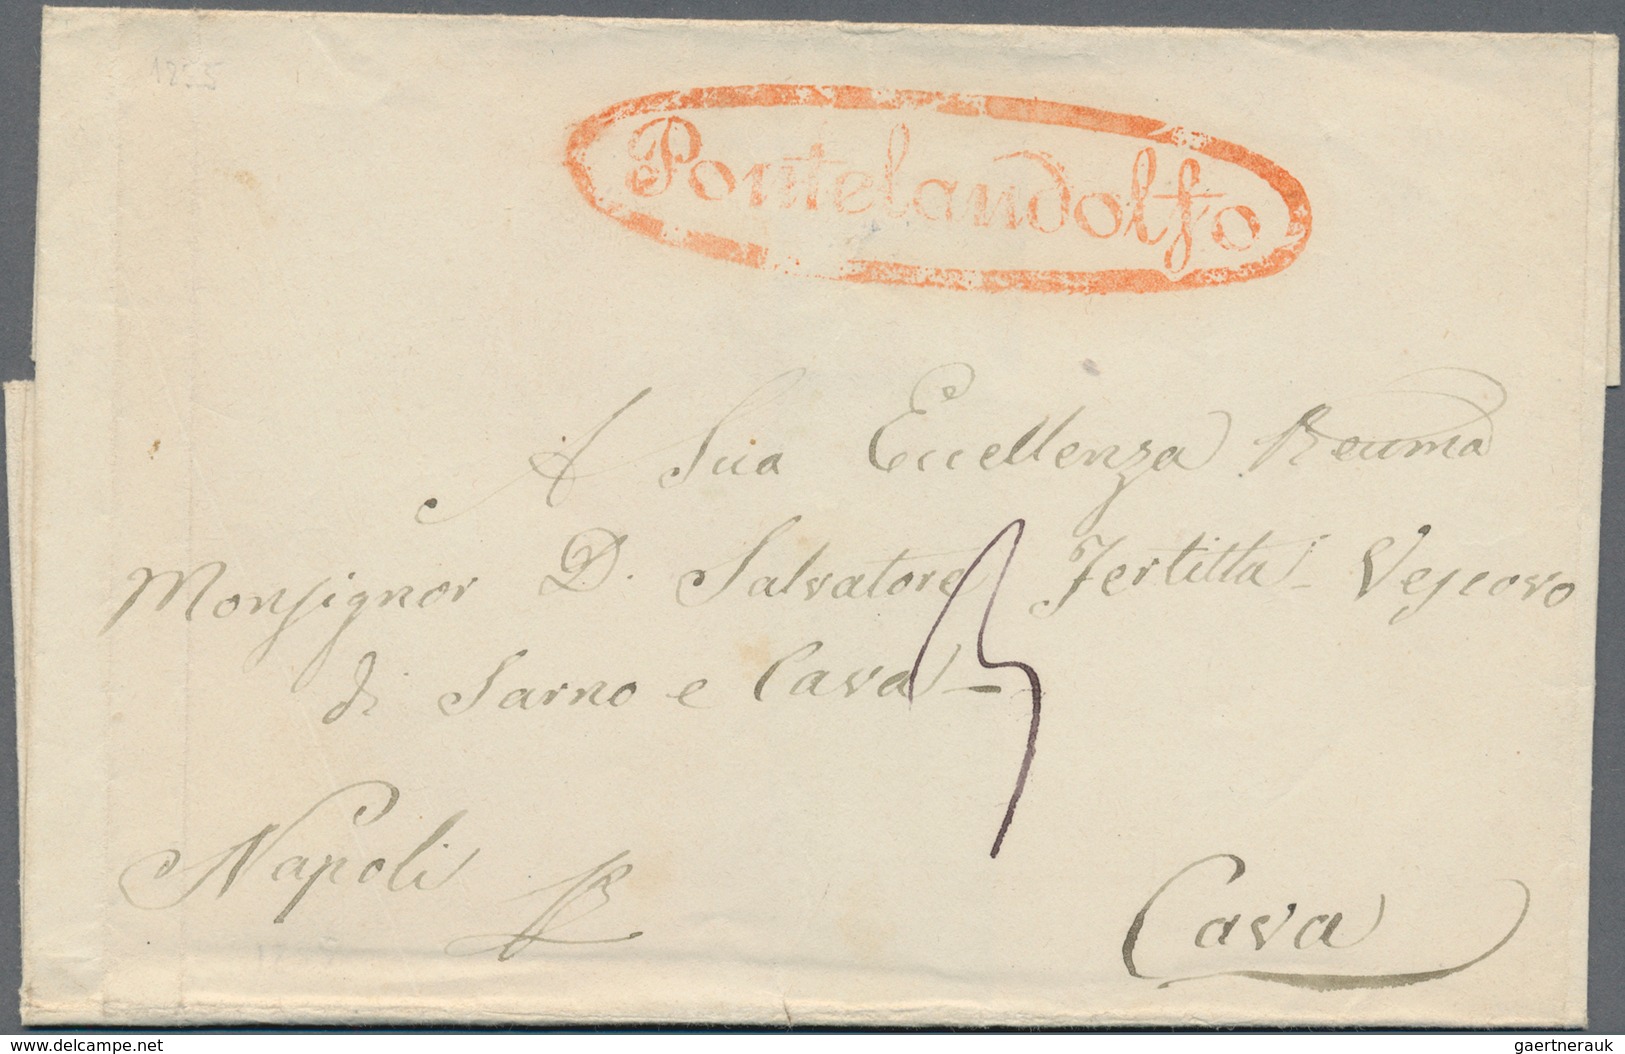 Pontelandolfo
A Sua Eccellenza Reuma
Monsignor D. Salvatore Fertitta Vescovo
di Sarno e Cava
Napoli
Cava
delcampe.net
gaertnerauk